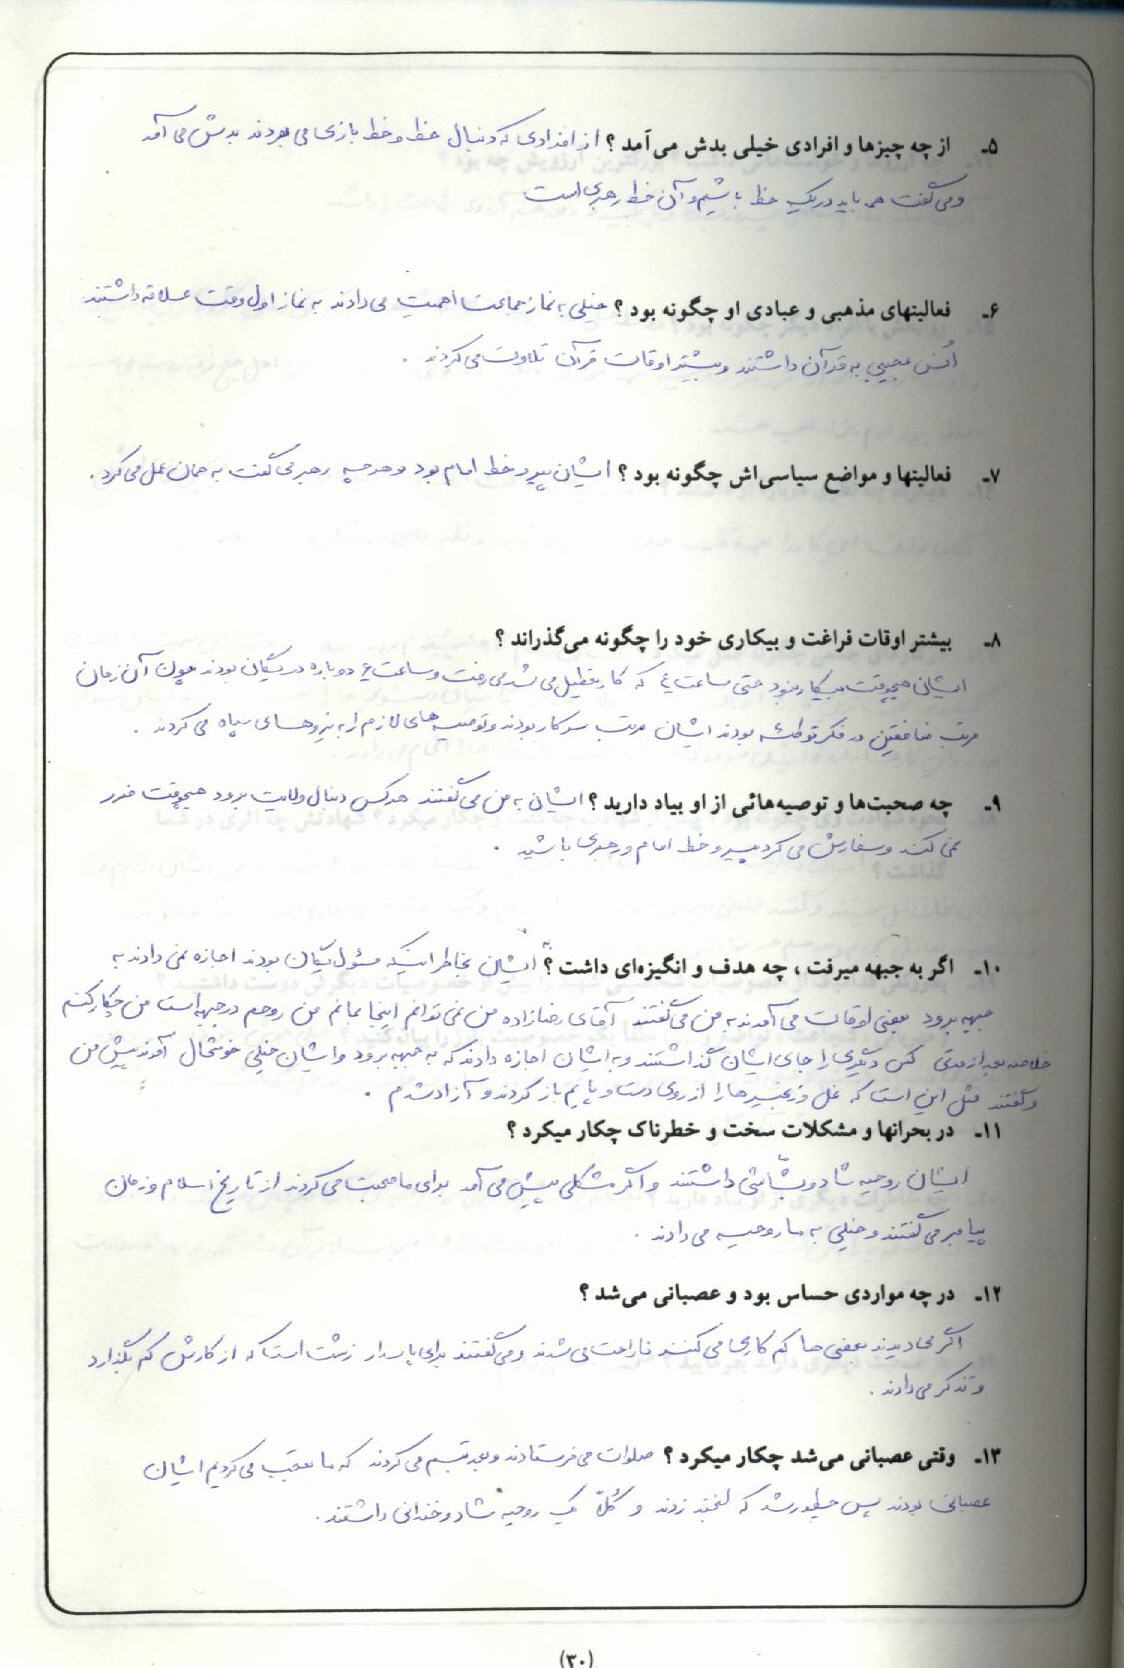 ۵ـ از چه چیزها و افرادی خیلی بدش می‌آمد ؟ از افرادی که دنبال خط و خط بازی می بودند بدش می آمد
و می گفت همه باید در یک خط باشیم و آن خط رهبری است
۶ـ فعالیتهای مذهبی و عبادی او چگونه بود ؟ خیلی به نماز جماعت اهمیت می دادند به نماز اول وقت علاقه داشتند
اُنس عجیبی به قرآن داشتند و بیشتر اوقات قرآن تلاوت می کردند .
۷ـ فعالیتها و مواضع سیاسی‌اش چگونه بود ؟ ایشان پیرو خط امام بود و هر چه رهبر می گفت به همان عمل می کرد .
۸ـ بیشتر اوقات فراغت و بیکاری خود را چگونه می‌گذراند ؟
ایشان هیچوقت بیکار نبود حتی ساعت ۲ که کار تعطیل می شد می رفت و ساعت ۴ دوباره در یگان بودند چون آن زمان
مرتب منافقین در فکر توطئه بودند ایشان مرتب سر کار بودند و توصیه های لازم را به نیروهای سپاه می کردند .
۹ـ چه صحبت‌ها و توصیه‌هائی از او بیاد دارید ؟ ایشان به من می گفتند هر کس دنبال ولایت برود هیچوقت ضرر
نمی کند و سفارش می کرد پیرو خط امام و رهبری باشید .
۱۰ـ اگر به جبهه میرفت ، چه هدف و انگیزه‌ای داشت ؟ ایشان بخاطر اینکه مسئول یگان بودند اجازه نمی دادند به
جبهه برود بعضی اوقات می آمدند به من می گفتند آقای رضازاده من نمی توانم اینجا بمانم من روحم در جبهه است من چکار کنم
خلاصه بعد از مدتی کس دیگری را جای ایشان گذاشتند و به ایشان اجازه دادند که به جبهه برود و ایشان خیلی خوشحال آمدند پیش من
و گفتند مثل این است که غل و زنجیرها را از روی دست و پایم باز کردند و آزاد شدم .
۱۱ـ در بحرانها و مشکلات سخت و خطرناک چکار میکرد ؟
ایشان روحیه شاد و بشّاشی داشتند و اگر مشکلی پیش می آمد برای ما صحبت می کردند از تاریخ اسلام و زمان
پیامبر می گفتند و خیلی به ما روحیه می دادند .
۱۲ـ در چه مواردی حساس بود و عصبانی می‌شد ؟
اگر می دیدند بعضی ها کم کاری می کنند ناراحت می شدند و می گفتند برای پاسدار زشت است که از کارش کم بگذارد
و تذکر می دادند .
۱۳ـ وقتی عصبانی می‌شد چکار میکرد ؟ صلوات می فرستادند و بعد تبسم می کردند که ما تعجب می کردیم ایشان
عصبانی بودند پس چطور شد که لبخند زدند و کُلاً یک روحیه شاد و خندانی داشتند .
(۳۰)